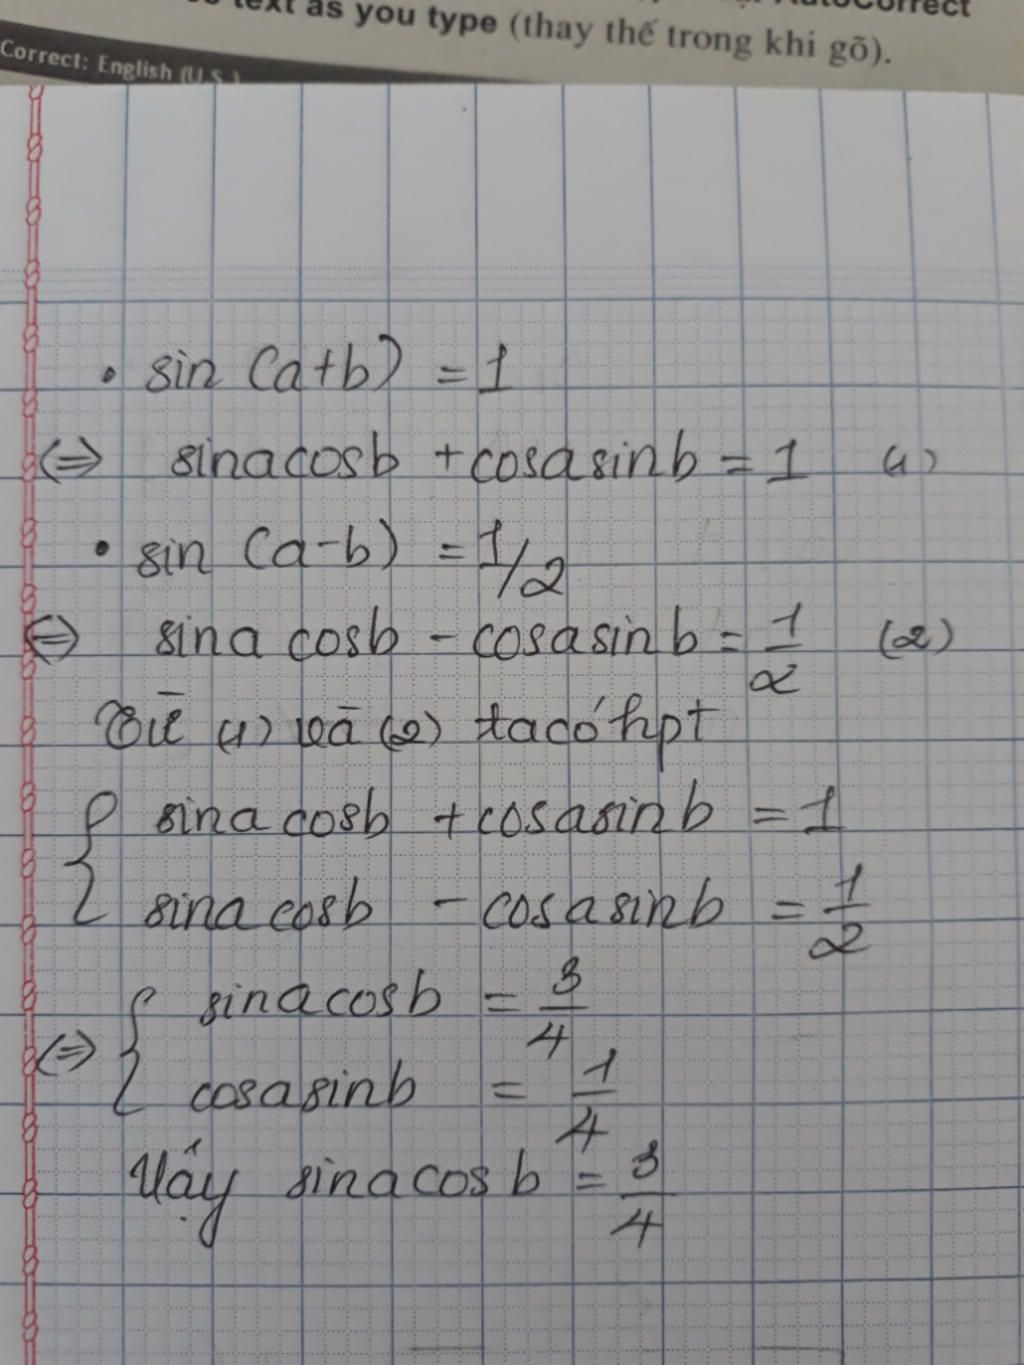 text as you type (thay thế trong khi gõ).
Correct: English (U.S.)
• sin (a+b) = 1
⇔ sinacosb + cosasinb = 1 (1)
• sin (a-b) = 1/2
⇔ sina cosb - cosasinb = 1/2 (2)
Từ (1) và (2) ta có hpt
{ sina cosb + cosasinb = 1
sina cosb - cosasinb = 1/2
⇔ { sinacosb = 3/4
cosasinb = 1/4
Vậy sinacosb = 3/4